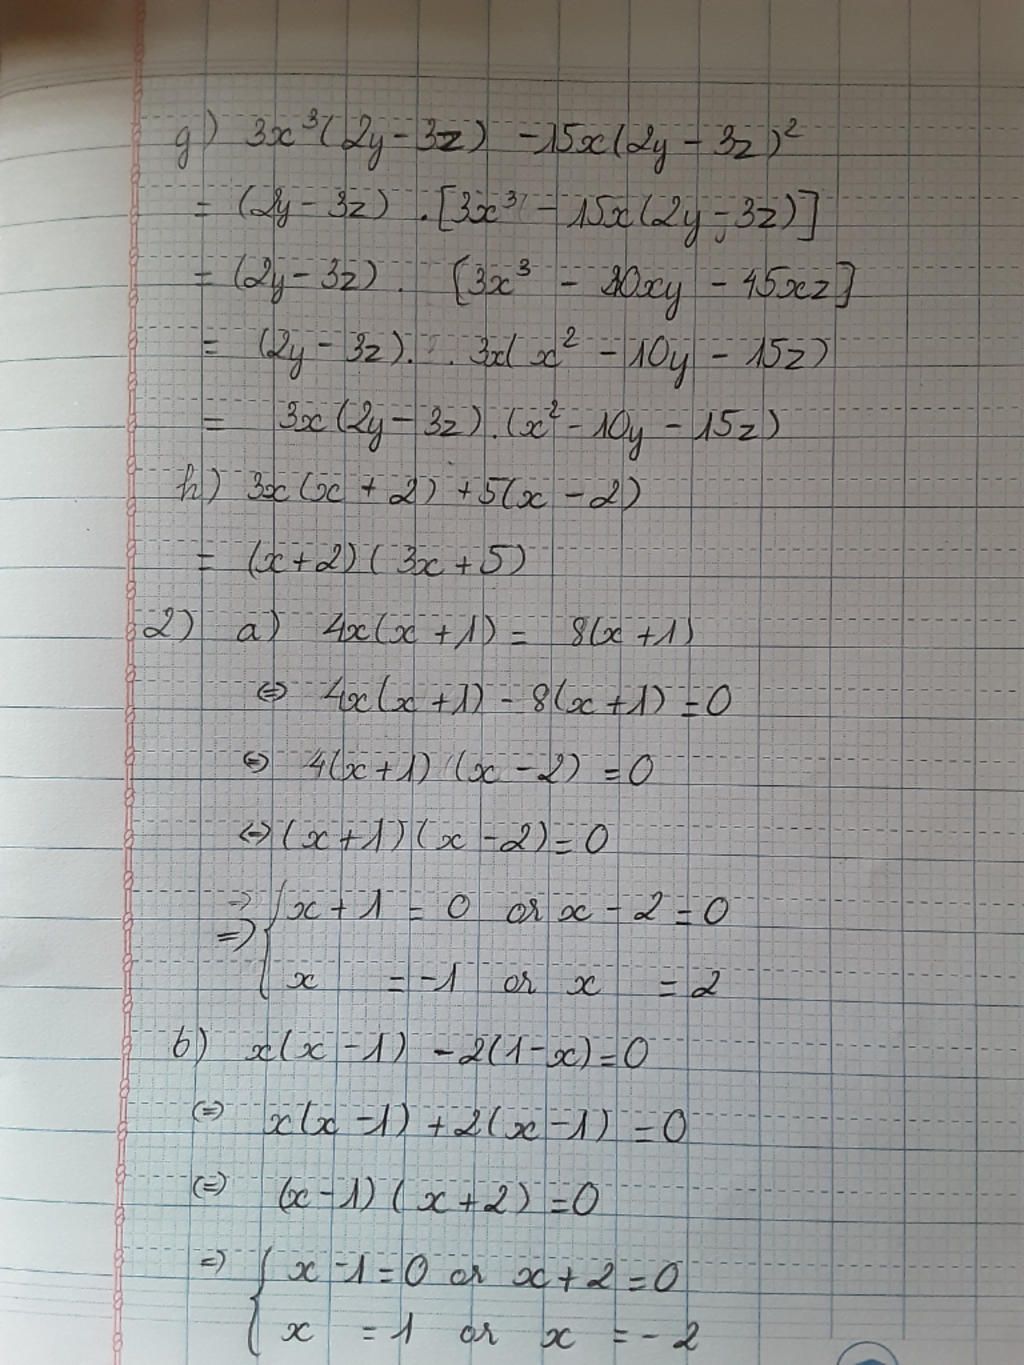 g) 3x³(2y - 3z) - 15x(2y - 3z)²
= (2y - 3z) . [3x³ - 15x(2y - 3z)]
= (2y - 3z) . [3x³ - 30xy - 45xz]
= (2y - 3z) . . 3x(x² - 10y - 15z)
= 3x(2y - 3z).(x² - 10y - 15z)
h) 3x(x + 2) + 5(x - 2)
= (x + 2)(3x + 5)
2) a) 4x(x + 1) = 8(x + 1)
⇔ 4x(x + 1) - 8(x + 1) = 0
⇔ 4(x + 1)(x - 2) = 0
⇔ (x + 1)(x - 2) = 0
⇒ { x + 1 = 0 or x - 2 = 0
x = -1 or x = 2
b) x(x - 1) - 2(1 - x) = 0
⇔ x(x - 1) + 2(x - 1) = 0
⇔ (x - 1)(x + 2) = 0
⇒ { x - 1 = 0 or x + 2 = 0
x = 1 or x = -2